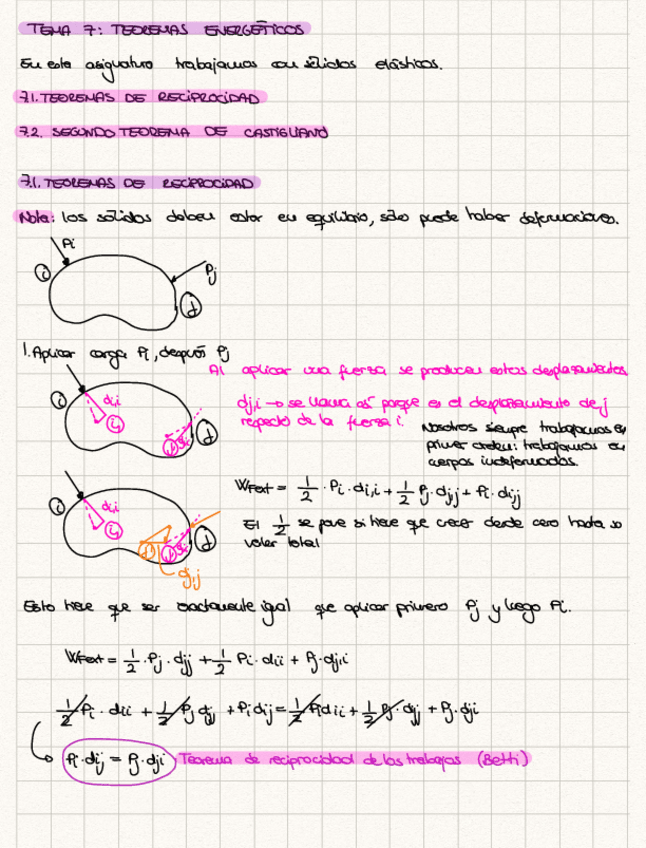 TEMA 7: TEOREMAS ENERGÉTICOS
En esta asignatura trabajamos con sólidos elásticos.
7.1. TEOREMAS DE RECIPROCIDAD
7.2. SEGUNDO TEOREMA DE CASTIGLIANO
7.1. TEOREMAS DE RECIPROCIDAD
Nota: los sólidos deben estar en equilibrio, sólo puede haber deformaciones.
Pi
i
Pj
j
1. Aplicar carga Pi, después Pj
Al aplicar una fuerza se producen estos desplazamientos
dj,i → se llama así porque es el desplazamiento de j
respecto de la fuerza i.
Nosotros siempre trabajamos en
primer orden: trabajamos en
cuerpos indeformados.
i
di,i
j
WFext = 1/2 · Pi · di,i + 1/2 Pj · djj + Pi · dij
El 1/2 se pone si tiene que crecer desde cero hasta su
valor total
i
di,i
j
Esto tiene que ser exactamente igual que aplicar primero Pj y luego Pi.
WFext = 1/2 · Pj · djj + 1/2 Pi · dii + Pj · dj,i
1/2 Pi · dii + 1/2 Pj djj + Pi dij = 1/2 Pi dii + 1/2 Pj · djj + Pj · dji
Pi · dij = Pj · dji Teorema de reciprocidad de los trabajos (Betti)